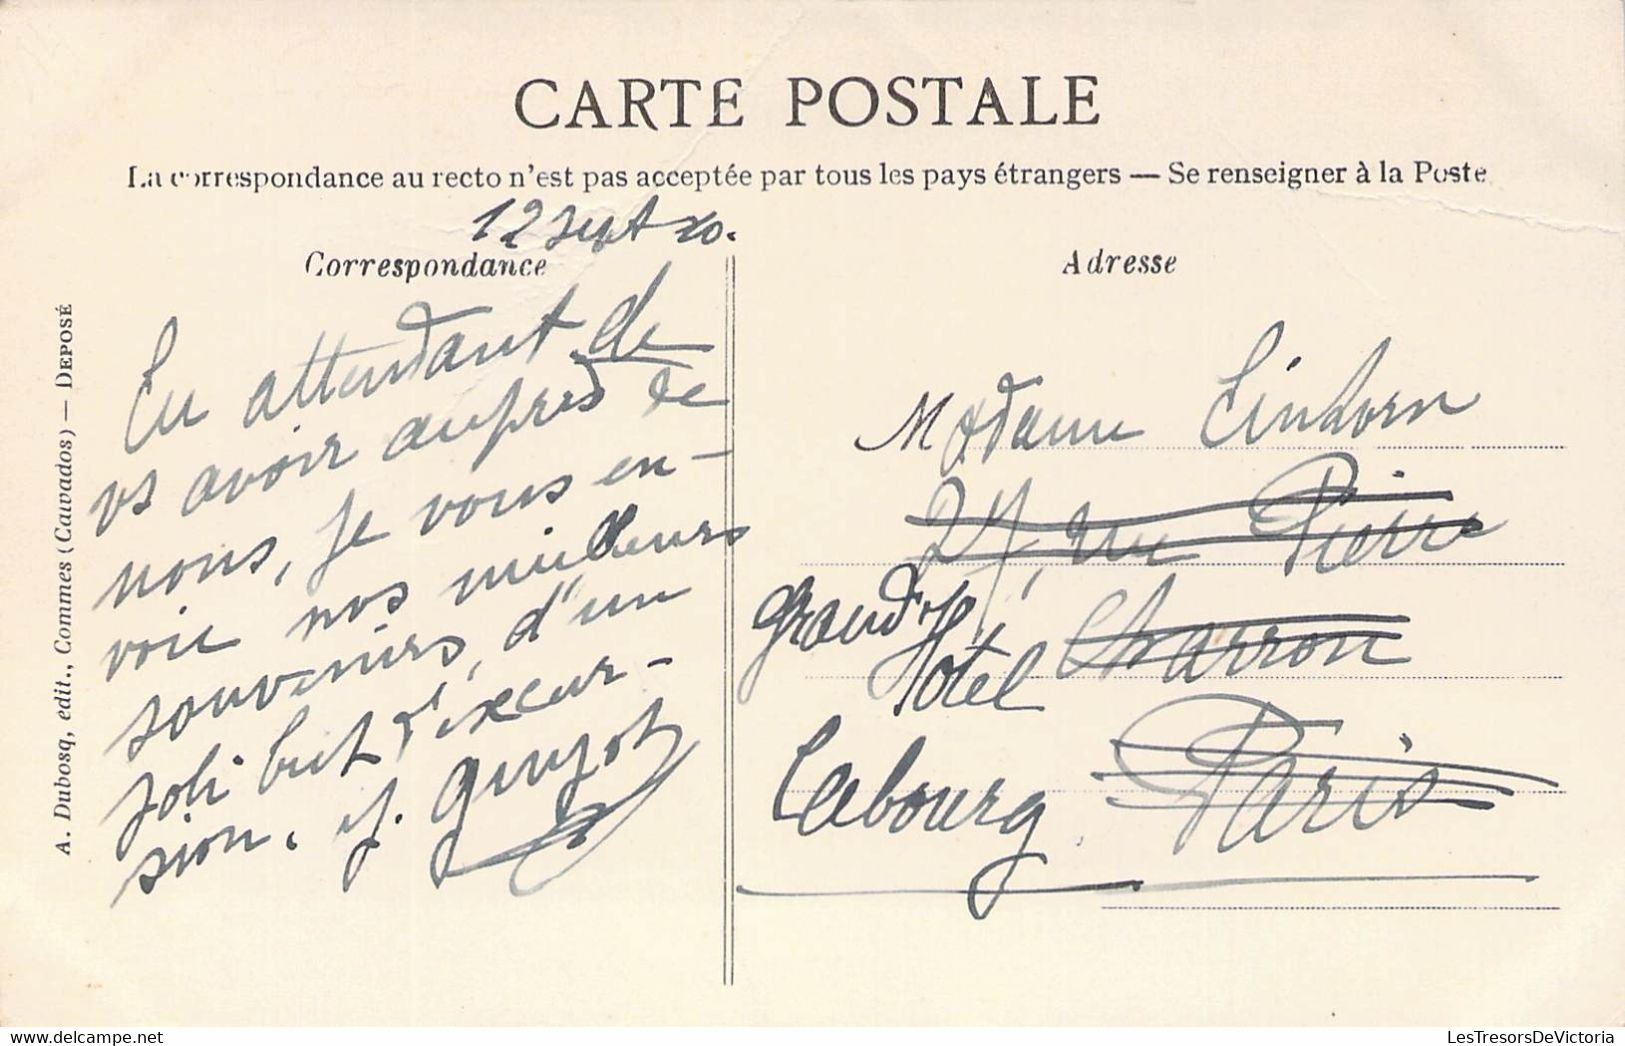 CARTE POSTALE
La correspondance au recto n'est pas acceptée par tous les pays étrangers — Se renseigner à la Poste
12 Sept 20.
Correspondance
En attendant de
vs avoir auprès de
nous, je vous en-
voie nos meilleurs
souvenirs, d'un
joli but d'excur-
sion. J. Guyot
A. Dubosq, edit., Commes (Cauvados) — DEPOSÉ
Adresse
Madame Einhorn
27, rue Pierre
Charron
Paris
Grand Hôtel
Cabourg
delcampe.net
LesTresorsDeVictoria